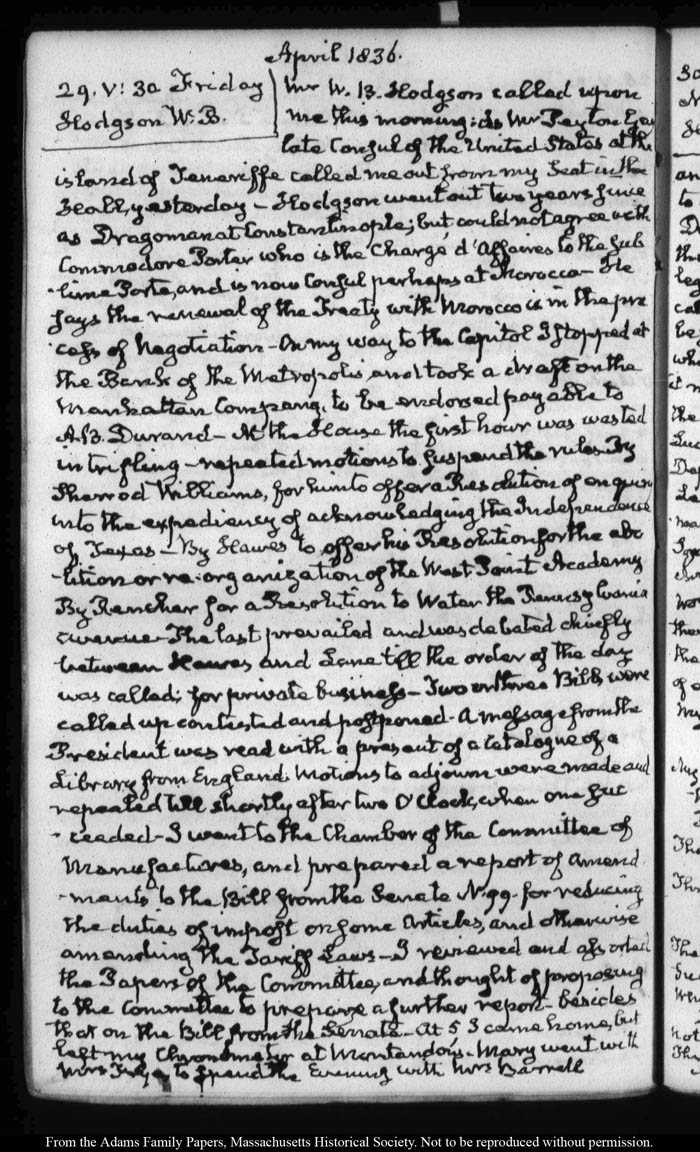 April 1836.
29. V: 30 Friday
Hodgson W. B.
Mr W. B. Hodgson called upon
me this morning: as Mr Peyton Gay
late Consul of the United States at the
island of Teneriffe called me out from my Seat in the
Hall, yesterday - Hodgson went out two years since
as Dragoman at Constantinople; but could not agree with
Commodore Porter who is the Chargé d'Affaires to the Sub
-lime Porte, and is now Consul perhaps at Morocco - He
says the renewal of the Treaty with Morocco is in the pro
-cess of Negotiation - On my way to the Capitol I stopped at
the Bank of the Metropolis and took a draft on the
Manhattan Company, to be endorsed payable to
A. B. Durand - At the House the first hour was wasted
in trifling - repeated motions to suspend the rules. By
Sherrod Williams, for him to offer a Resolution of enquiry
into the expediency of acknowledging the Independence
of Texas - By Hawes to offer his Resolution for the abo
-lition or re-organization of the West Point Academy
By Rencher for a Resolution to Water the Pennsylvania
avenue - The last prevailed and was debated chiefly
between Hawes and Lane till the order of the day
was called; for private business - Two or three Bills were
called up contested and postponed - A message from the
President was read with a present of a Catalogue of a
Library from England. Motions to adjourn were made and
repeated till shortly after two O'Clock, when one suc
-ceeded - I went to the Chamber of the Committee of
Manufactures, and prepared a report of amend
-ments to the Bill from the Senate N. 99. for reducing
the duties of impost on some Articles, and otherwise
amending the Tariff Laws - I reviewed and assorted
the Papers of the Committee, and thought of proposing
to the Committee to prepare a further report - besides
that on the Bill from the Senate - At 5 I came home, but
left my Chronometer at Montandon's. Mary went with
Mrs Frye to spend the Evening with Mrs Barrell
From the Adams Family Papers, Massachusetts Historical Society. Not to be reproduced without permission.